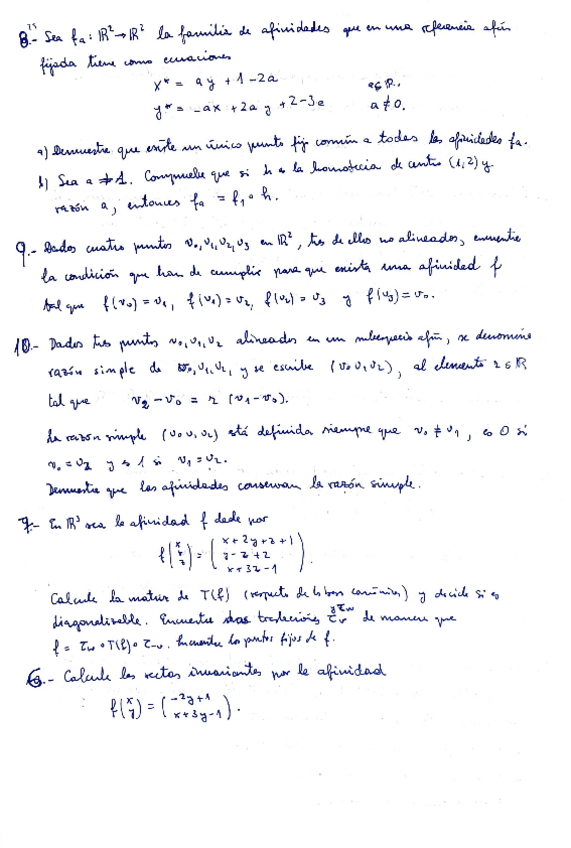 8.- Sea fₐ : ℝ² → ℝ² la familia de afinidades que en una referencia afín
fijada tiene como ecuaciones
x* = ay + 1 - 2a a ∈ ℝ.
y* = -ax + 2ay + 2 - 3a a ≠ 0.
a) Demuestre que existe un único punto fijo común a todas las afinidades fₐ.
b) Sea a ≠ 1. Compruebe que si h es la homotecia de centro (1,2) y
razón a, entonces fₐ = f₁ ∘ h.
9.- Dados cuatro puntos v₀, v₁, v₂, v₃ en ℝ², tres de ellos no alineados, encuentre
la condición que han de cumplir para que exista una afinidad f
tal que f(v₀) = v₁, f(v₁) = v₂, f(v₂) = v₃ y f(v₃) = v₀.
10.- Dados tres puntos v₀, v₁, v₂ alineados en un subespacio afín, se denomina
razón simple de v₀, v₁, v₂, y se escribe (v₀ v₁ v₂), al elemento r ∈ ℝ
tal que v₂ - v₀ = r (v₁ - v₀).
La razón simple (v₀ v₁ v₂) está definida siempre que v₀ ≠ v₁, es 0 si
v₀ = v₂ y es 1 si v₁ = v₂.
Demuestre que las afinidades conservan la razón simple.
7.- En ℝ³ sea la afinidad f dada por
f(x y z) = (x + 2y + z + 1
y - z + 2
x + 3z - 1).
Calcule la matriz de T(f) (respecto de las bases canónicas) y decida si es
diagonalizable. Encuentre dos traslaciones τᵥ y τw de manera que
f = τw ∘ T(f) ∘ τ₋ᵥ. Encuentre los puntos fijos de f.
6.- Calcule las rectas invariantes por la afinidad
f(x y) = (-2y + 1
x + 3y - 1).